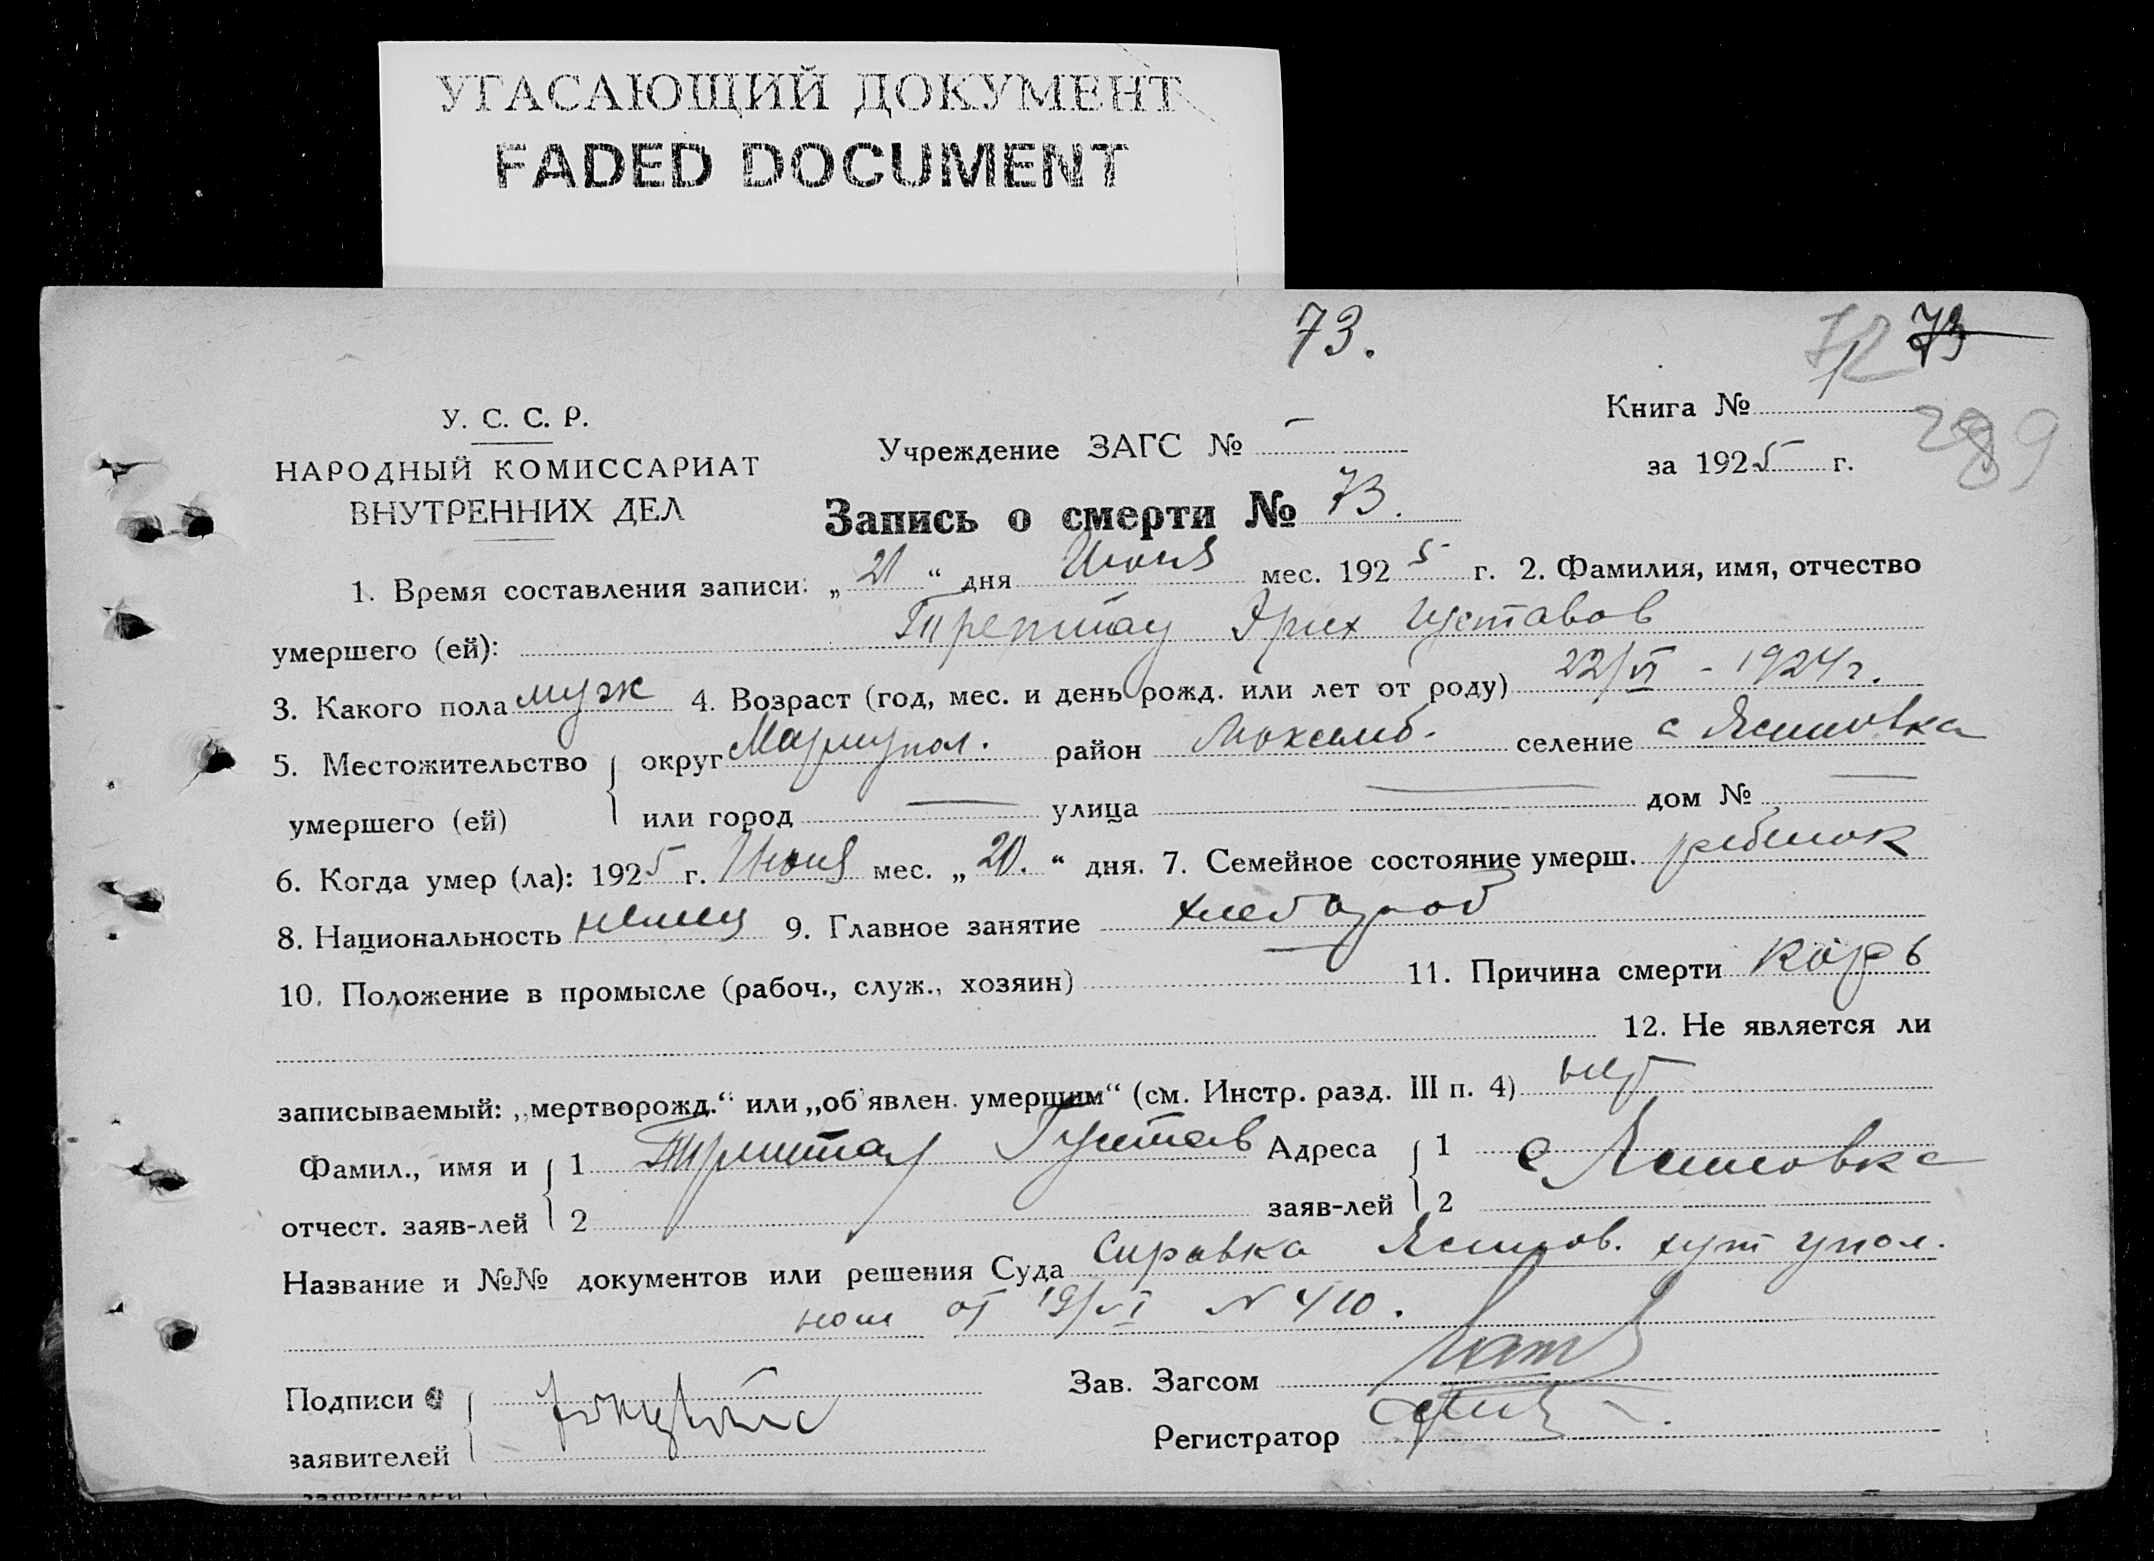 УГАСАЮЩИЙ ДОКУМЕНТ
FADED DOCUMENT
73.
72 73
289
У. С. С. Р.
НАРОДНЫЙ КОМИССАРИАТ
ВНУТРЕННИХ ДЕЛ
Учреждение ЗАГС № –
Книга №
за 1925 г.
Запись о смерти № 73.
1. Время составления записи: „21“ дня Июня мес. 1925 г. 2. Фамилия, имя, отчество
умершего (ей): Трептау Эрих Густавов
3. Какого пола муж 4. Возраст (год, мес. и день рожд. или лет от роду) 22/VI - 1924 г.
5. Местожительство округ Мариупол. район Люксемб. селение с Ясиновка
умершего (ей) или город — улица — дом № —
6. Когда умер (ла): 1925 г. Июня мес. „20.“ дня. 7. Семейное состояние умерш. ребенок
8. Национальность немец 9. Главное занятие хлебороб
10. Положение в промысле (рабоч., служ., хозяин) — 11. Причина смерти Корь
12. Не является ли
записываемый: „мертворожд.“ или „об'явлен. умершим“ (см. Инстр. разд. III п. 4) нет
Фамил., имя и 1 Трептау Густав Адреса 1 с Ясиновка
отчест. заяв-лей 2 заяв-лей 2
Название и №№ документов или решения Суда Справка Ясинов. хут упол.
от 19/VI N 410.
Подписи
заявителей
Зав. Загсом
Регистратор
заявителей